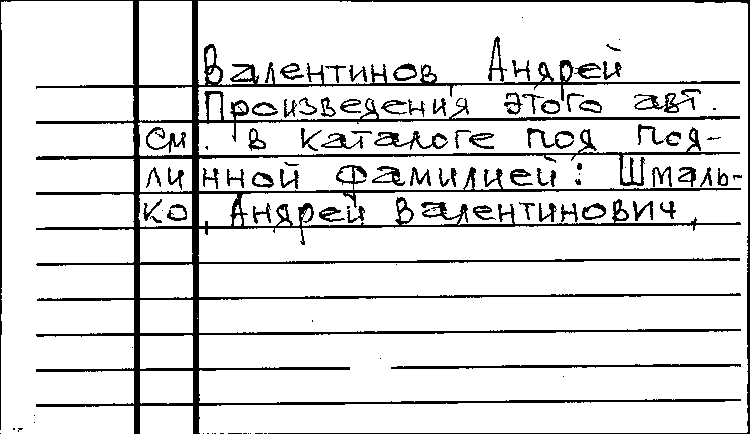 Валентинов, Андрей
Произведения этого авт.
см. в каталоге под под-
линной фамилией: Шмаль-
ко, Андрей Валентинович,